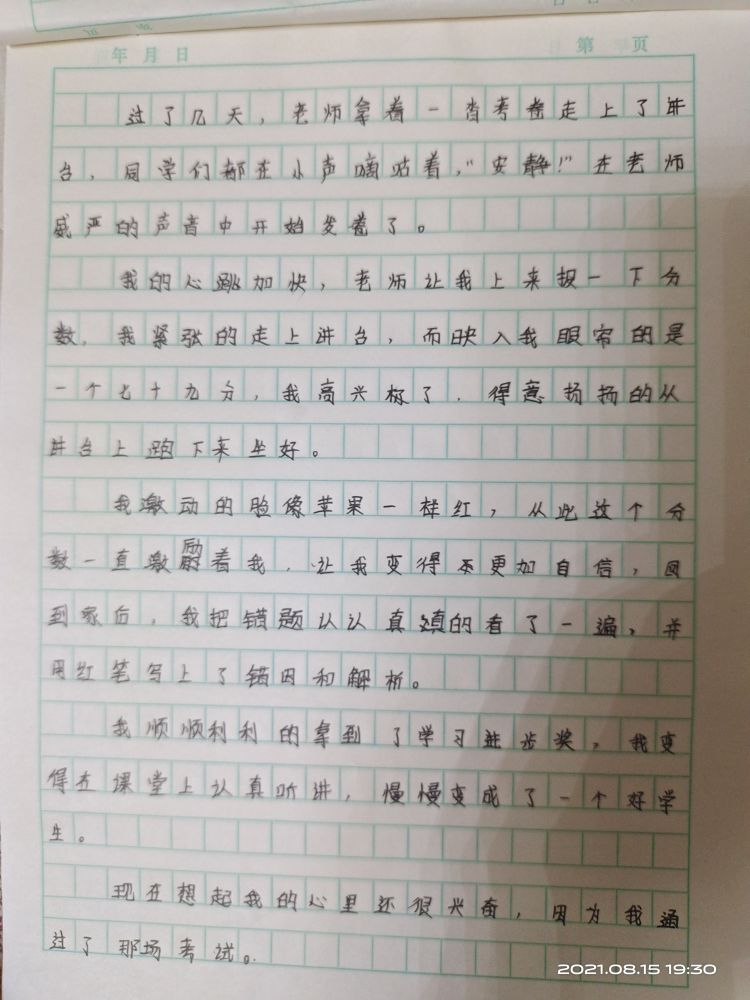 年 月 日 第 页
过了几天，老师拿着一沓考卷走上了讲
台，同学们都在小声嘀咕着，“安静！”在老师
威严的声音中开始发卷了。
我的心跳加快，老师让我上来报一下分
数，我紧张的走上讲台，而映入我眼帘的是
一个七十九分，我高兴极了，得意扬扬的从
讲台上跑下来坐好。
我激动的脸像苹果一样红，从此这个分
数一直激励着我，让我变得更加自信，回
到家后，我把错题认认真真的看了一遍，并
用红笔写上了错因和解析。
我顺顺利利的拿到了学习进步奖，我变
得在课堂上认真听讲，慢慢变成了一个好学
生。
现在想起我的心里还很兴奋，因为我通
过了那场考试。
2021.08.15 19:30